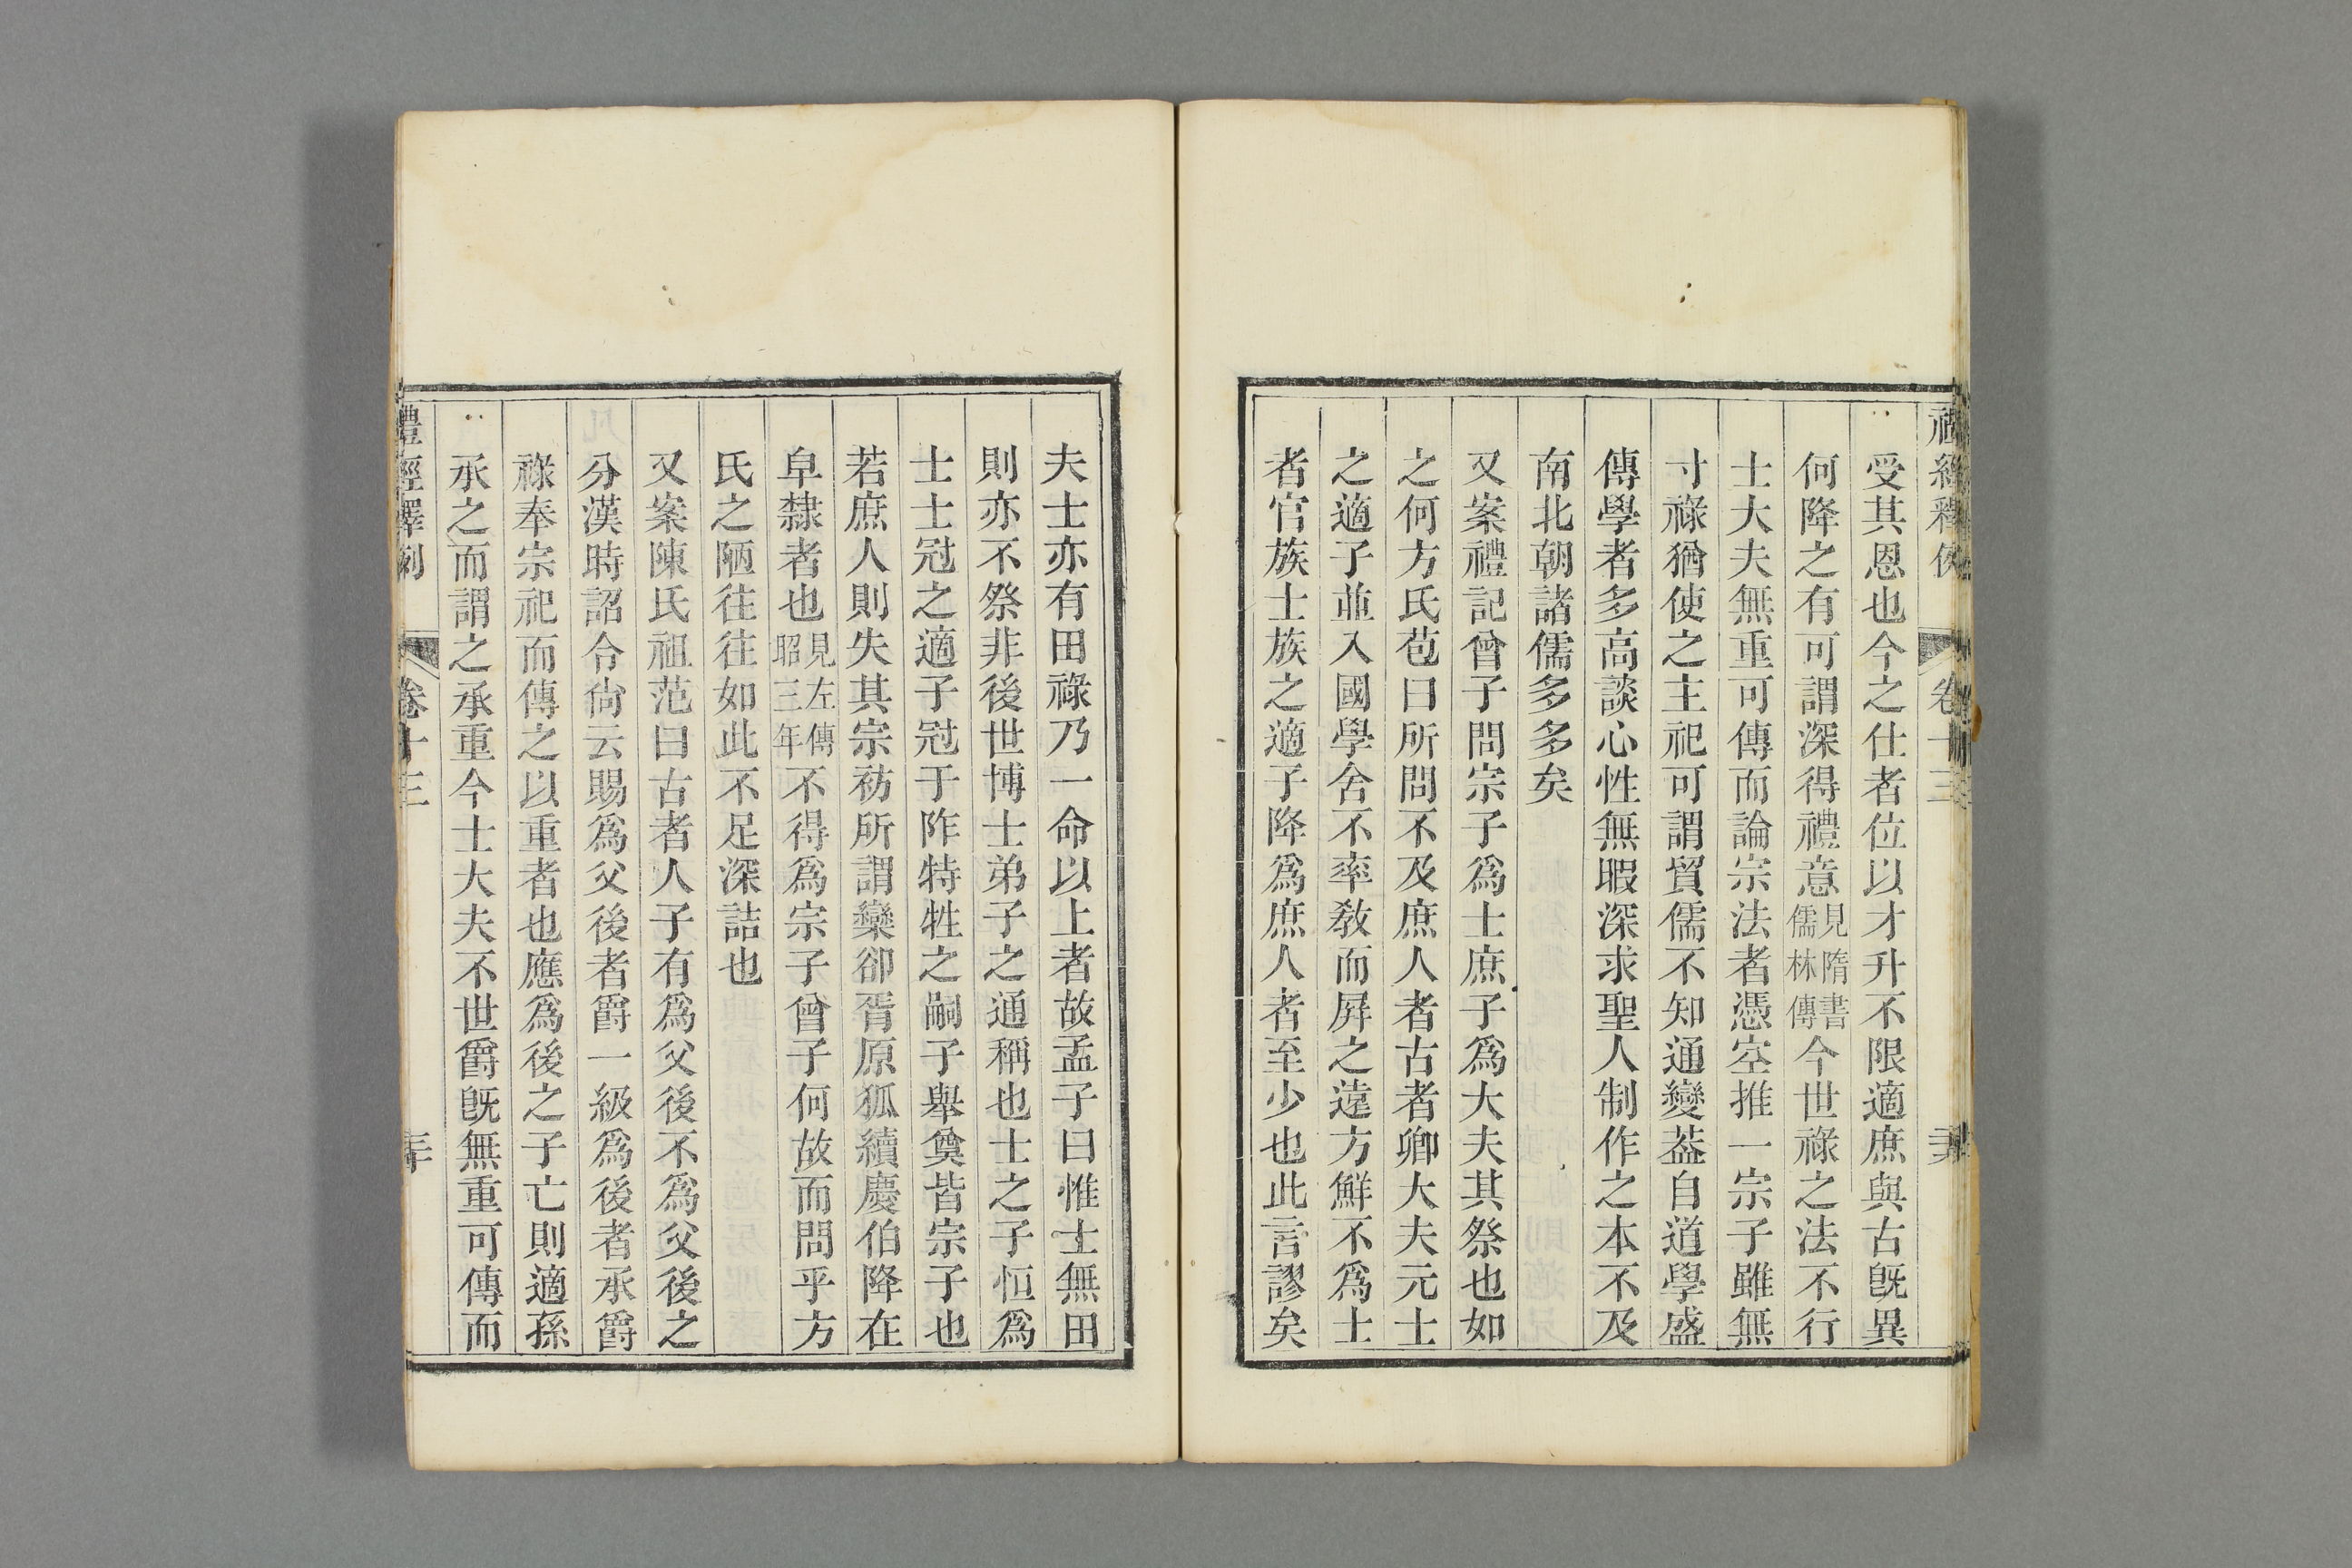 禮經釋例 卷十三
受其恩也今之仕者位以才升不限適庶與古旣異
何降之有可謂深得禮意見隋書儒林傳今世祿之法不行
士大夫無重可傳而論宗法者憑空推一宗子雖無
寸祿猶使之主祀可謂貿儒不知通變葢自道學盛
傳學者多高談心性無暇深求聖人制作之本不及
南北朝諸儒多多矣
又案禮記曾子問宗子爲士庶子爲大夫其祭也如
之何方氏苞曰所問不及庶人者古者卿大夫元士
之適子並入國學舍不率敎而屏之遠方鮮不爲士
者官族士族之適子降爲庶人者至少也此言謬矣
夫士亦有田祿乃一命以上者故孟子曰惟士無田
則亦不祭非後世博士弟子之通稱也士之子恒爲
士士冠之適子冠于阼特牲之嗣子舉奠皆宗子也
若庶人則失其宗祊所謂欒卻胥原狐續慶伯降在
皁隸者也見左傳昭三年不得爲宗子曾子何故而問乎方
氏之陋往往如此不足深詰也
又案陳氏祖范曰古者人子有爲父後不爲父後之
分漢時詔令尙云賜爲父後者爵一級爲後者承爵
祿奉宗祀而傳之以重者也應爲後之子亡則適孫
承之而謂之承重今士大夫不世爵旣無重可傳而
禮經釋例 卷十三